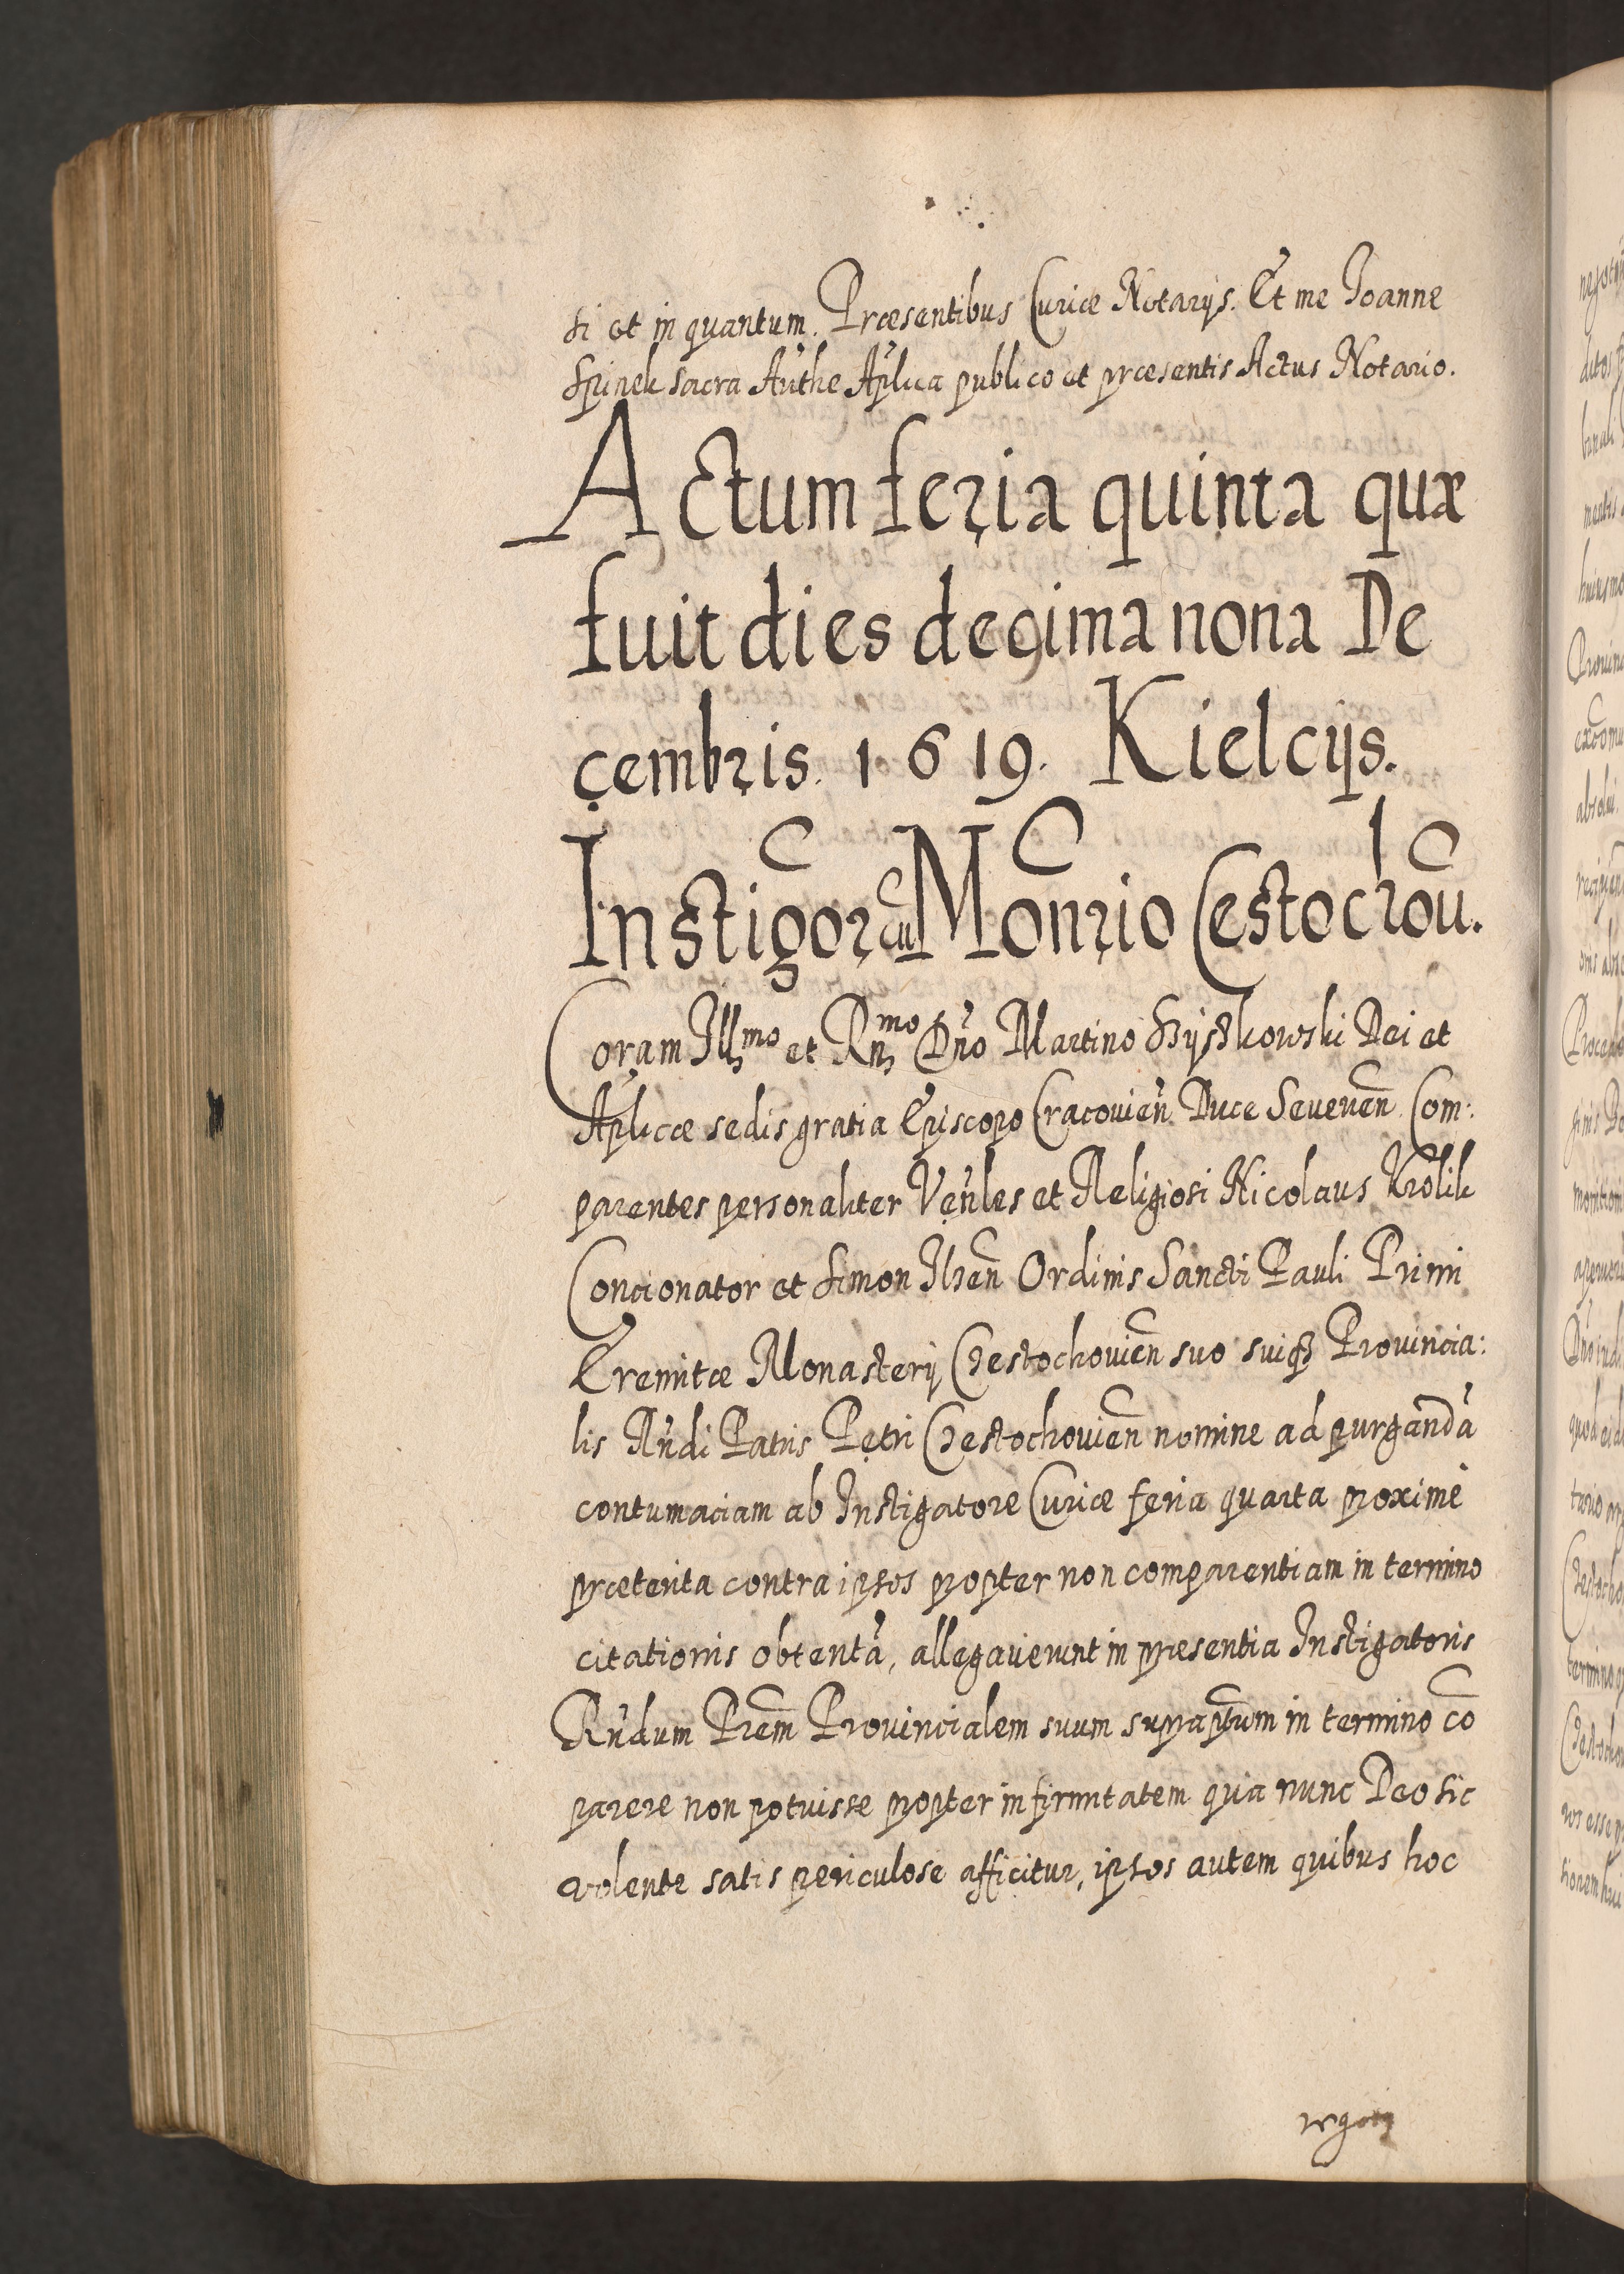 si et in quantum. Præsentibus Curiæ Notarijs. Et me Joanne
Spinek sacra Authe Aplica publico et præsentis Actus Notario.
Actum feria quinta quæ
fuit dies decima nona De
cembris. 1619. Kielcijs.
Instigor cũ Monrio Cestochou.
Coram Illmo et Rmo Dno Martino Szyszkowski Dei et
Aplicæ sedis gratia Episcopo Cracovien Duce Seveneñ Com:
parentes personaliter Venles et Religiosi Nicolaus Krolik
Concionator et Simon Ilzeñ Ordinis Sancti Pauli Primi
Eremitæ Monasterij Czestochovieñ suo suiqz Provincia:
lis Rndi Patris Petri Czestochovieñ nomine ad purgandã
contumaciam ab Instigatore Curiæ feria quarta proximè
præterita contra ipsos propter non comparentiam in termino
citationis obtentã, allegaverunt in præsentia Instigatoris
Rndum Prem Provincialem suum supraptum in termino cõ
parere non potuisse propter infirmitatem qua nunc Deo sic
volente satis periculose afficitur, ipsos autem quibus hoc